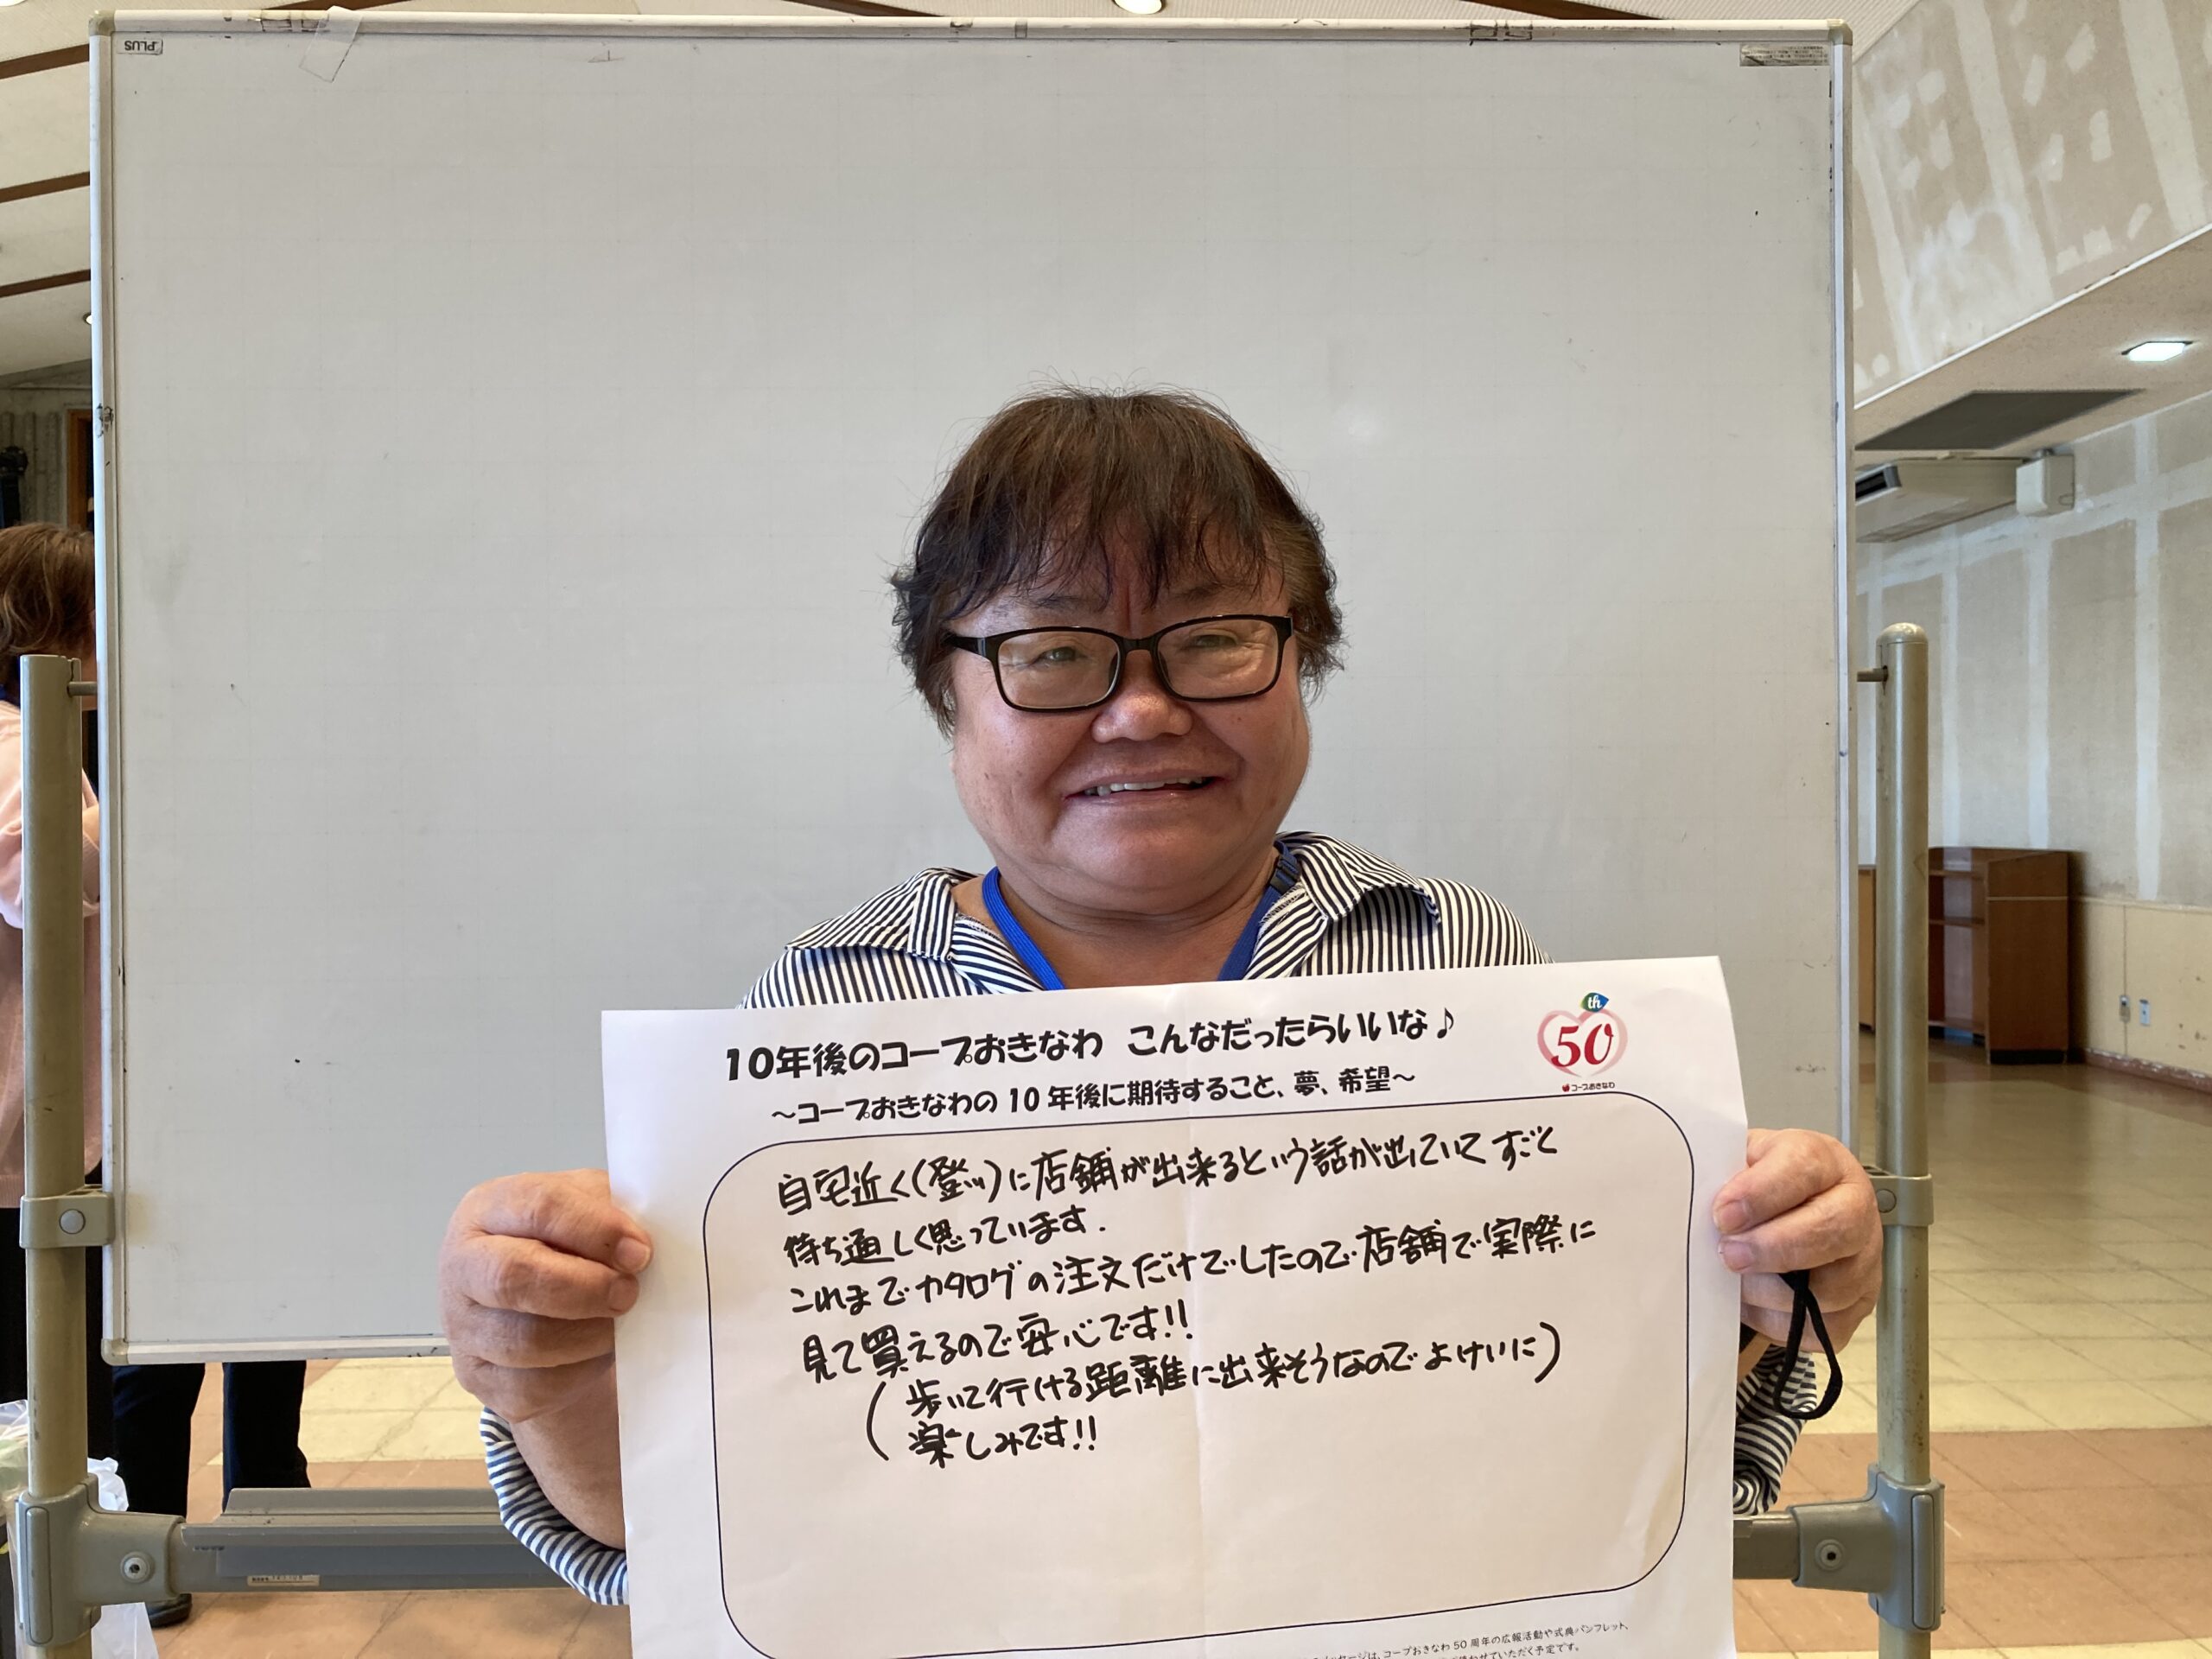 PLUS
10年後のコープおきなわ こんなだったらいいな♪
～コープおきなわの10年後に期待すること、夢、希望～
th
50
コープおきなわ
自宅近く(登川)に店舗が出来るという話が出ていてすごく
待ち遠しく思っています.
これまでカタログの注文だけでしたので店舗で実際に
見て買えるので安心です!!
(歩いて行ける距離に出来そうなのでよけいに)
(楽しみです!!
メッセージは、コープおきなわ50周年の広報活動や式典パンフレット、
使わせていただく予定です。